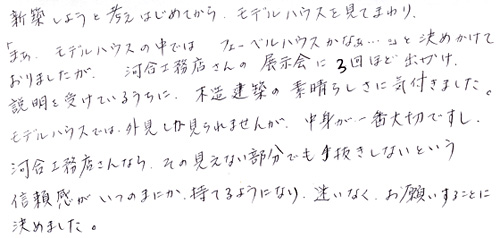 新築しようと考えはじめてから、モデルハウスを見てまわり、
「まぁ、モデルハウスの中では フェーベルハウスかなぁ…」と決めかけて
おりましたが、河合工務店さんの展示会に3回ほど出かけ、
説明を受けているうちに、木造建築の素晴らしさに気付きました。
モデルハウスでは、外見しか見られませんが、中身が一番大切ですし、
河合工務店さんなら、その見えない部分でも手抜きしないという
信頼感がいつのまにか、持てるようになり、迷いなく、お願いすることに
決めました。